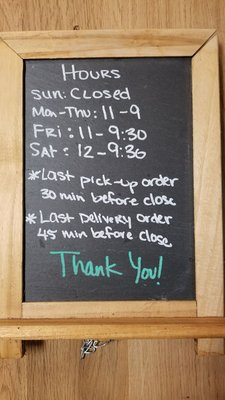 Hours
Sun: Closed
Mon-Thu: 11-9
Fri: 11-9:30
Sat: 12-9:30
*Last pick-up order
30 min before close
*Last Delivery order
45 min before close
Thank You!